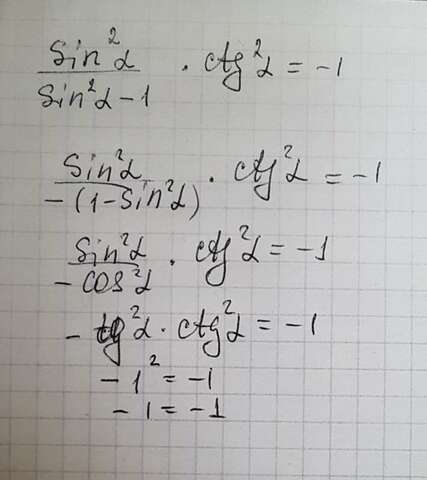 sin²α / (sin²α - 1) · ctg²α = -1
sin²α / (-(1 - sin²α)) · ctg²α = -1
sin²α / (-cos²α) · ctg²α = -1
- tg²α · ctg²α = -1
-1² = -1
-1 = -1